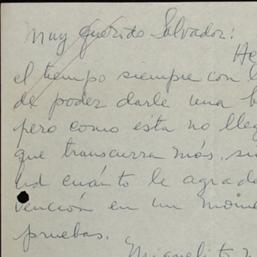 Muy querido Salvador:
He
el tiempo siempre con l
de poder darle una b
pero como ésta no lleg
que transcurra más, si
Ud cuánto le agrade
vención en un mome
pruebas.
Miguelito y